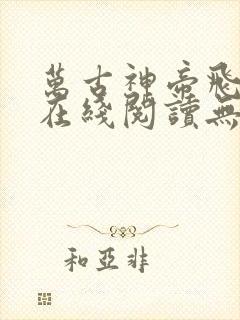 萬古神帝飛
在綫閱讀無
和亞非